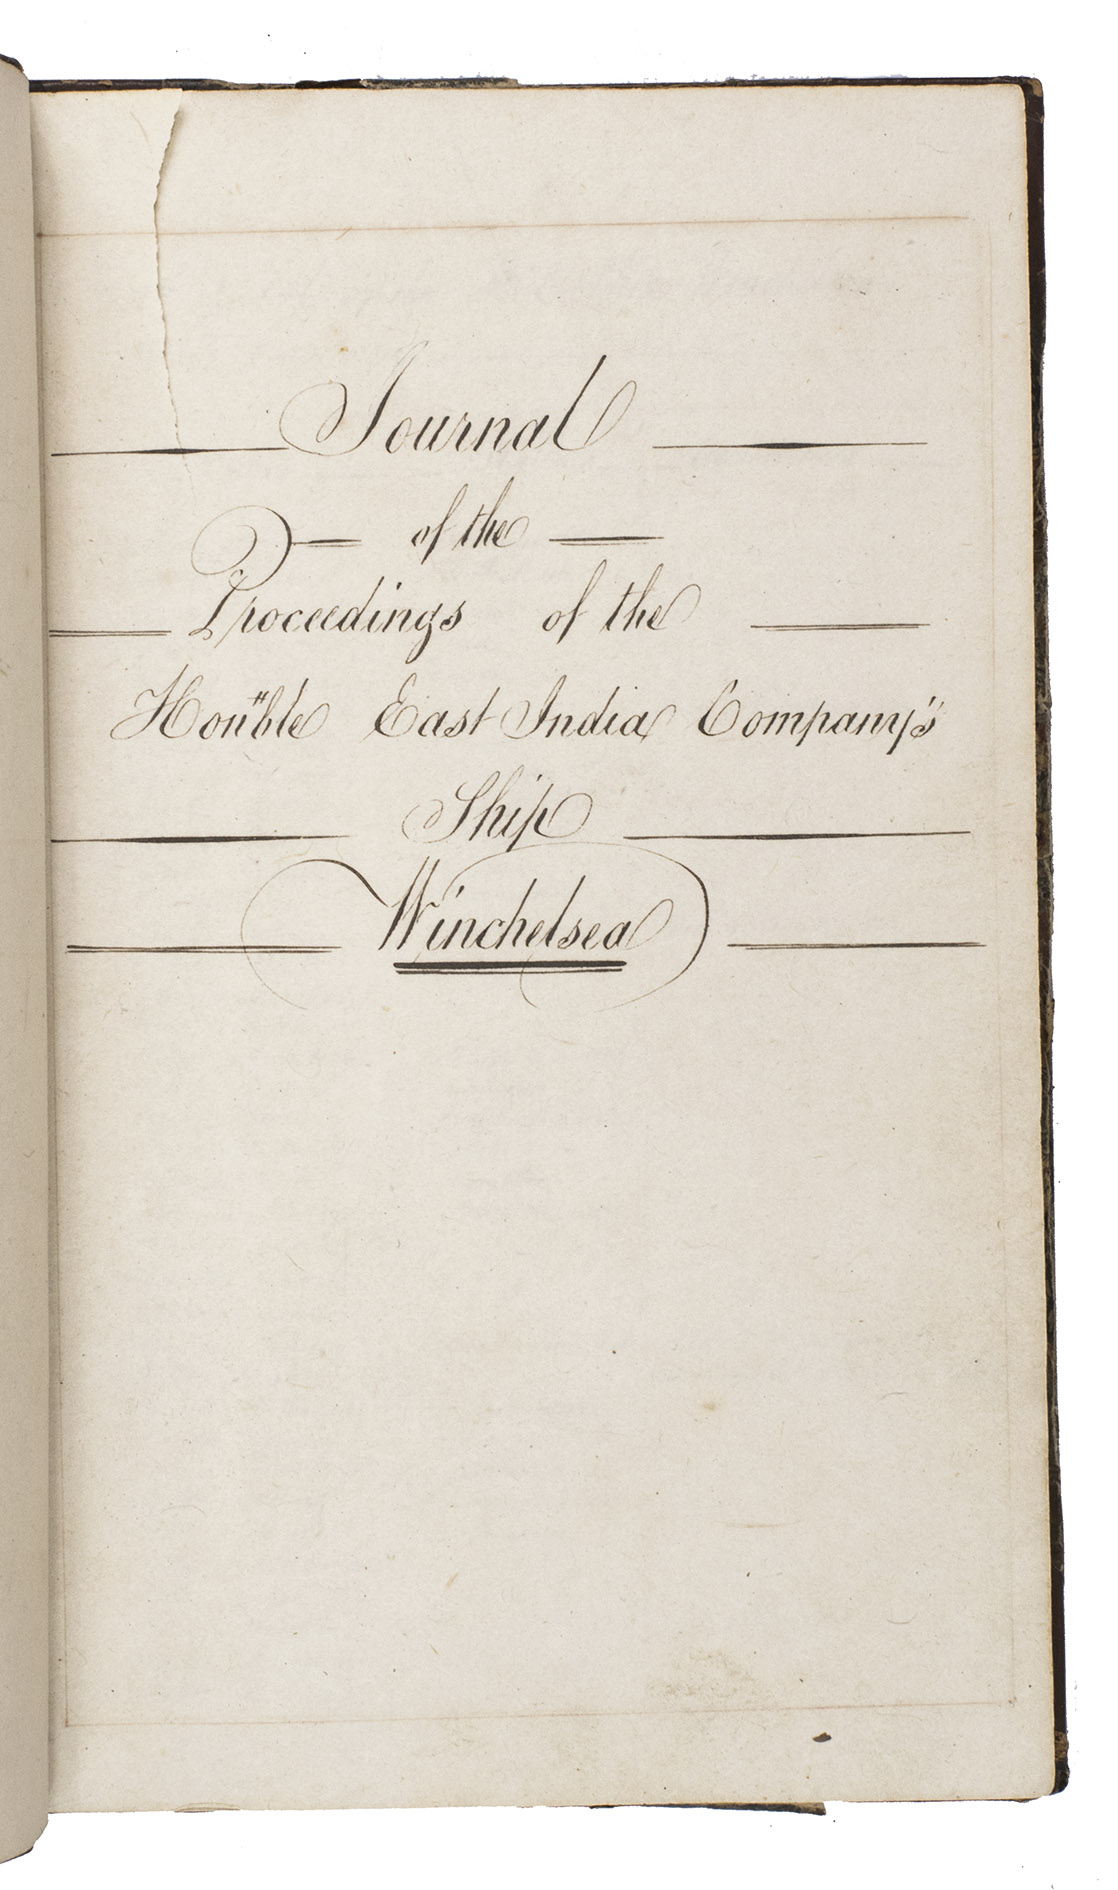 Journal
of the
Proceedings of the
Hon"ble East India Company's
Ship
Winchelsea